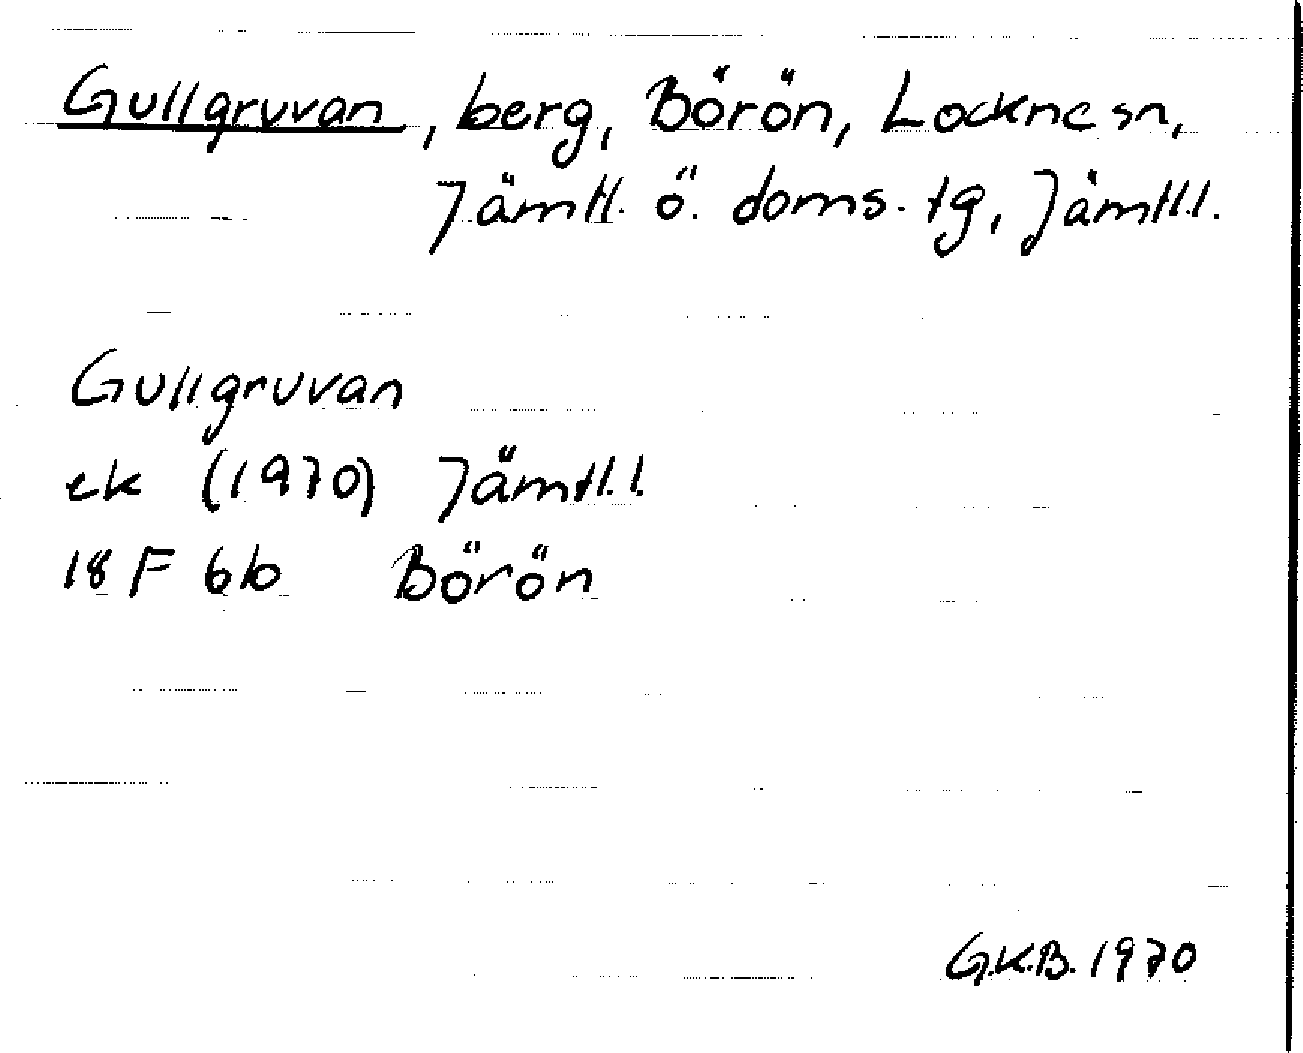 Gullgruvan, berg, Börön, Lockne sn,
Jämtl. ö. doms. tg, Jämtl.l.
Gullgruvan
ek (1970) Jämtl.l.
18 F 6b Börön
G.K.B. 1970